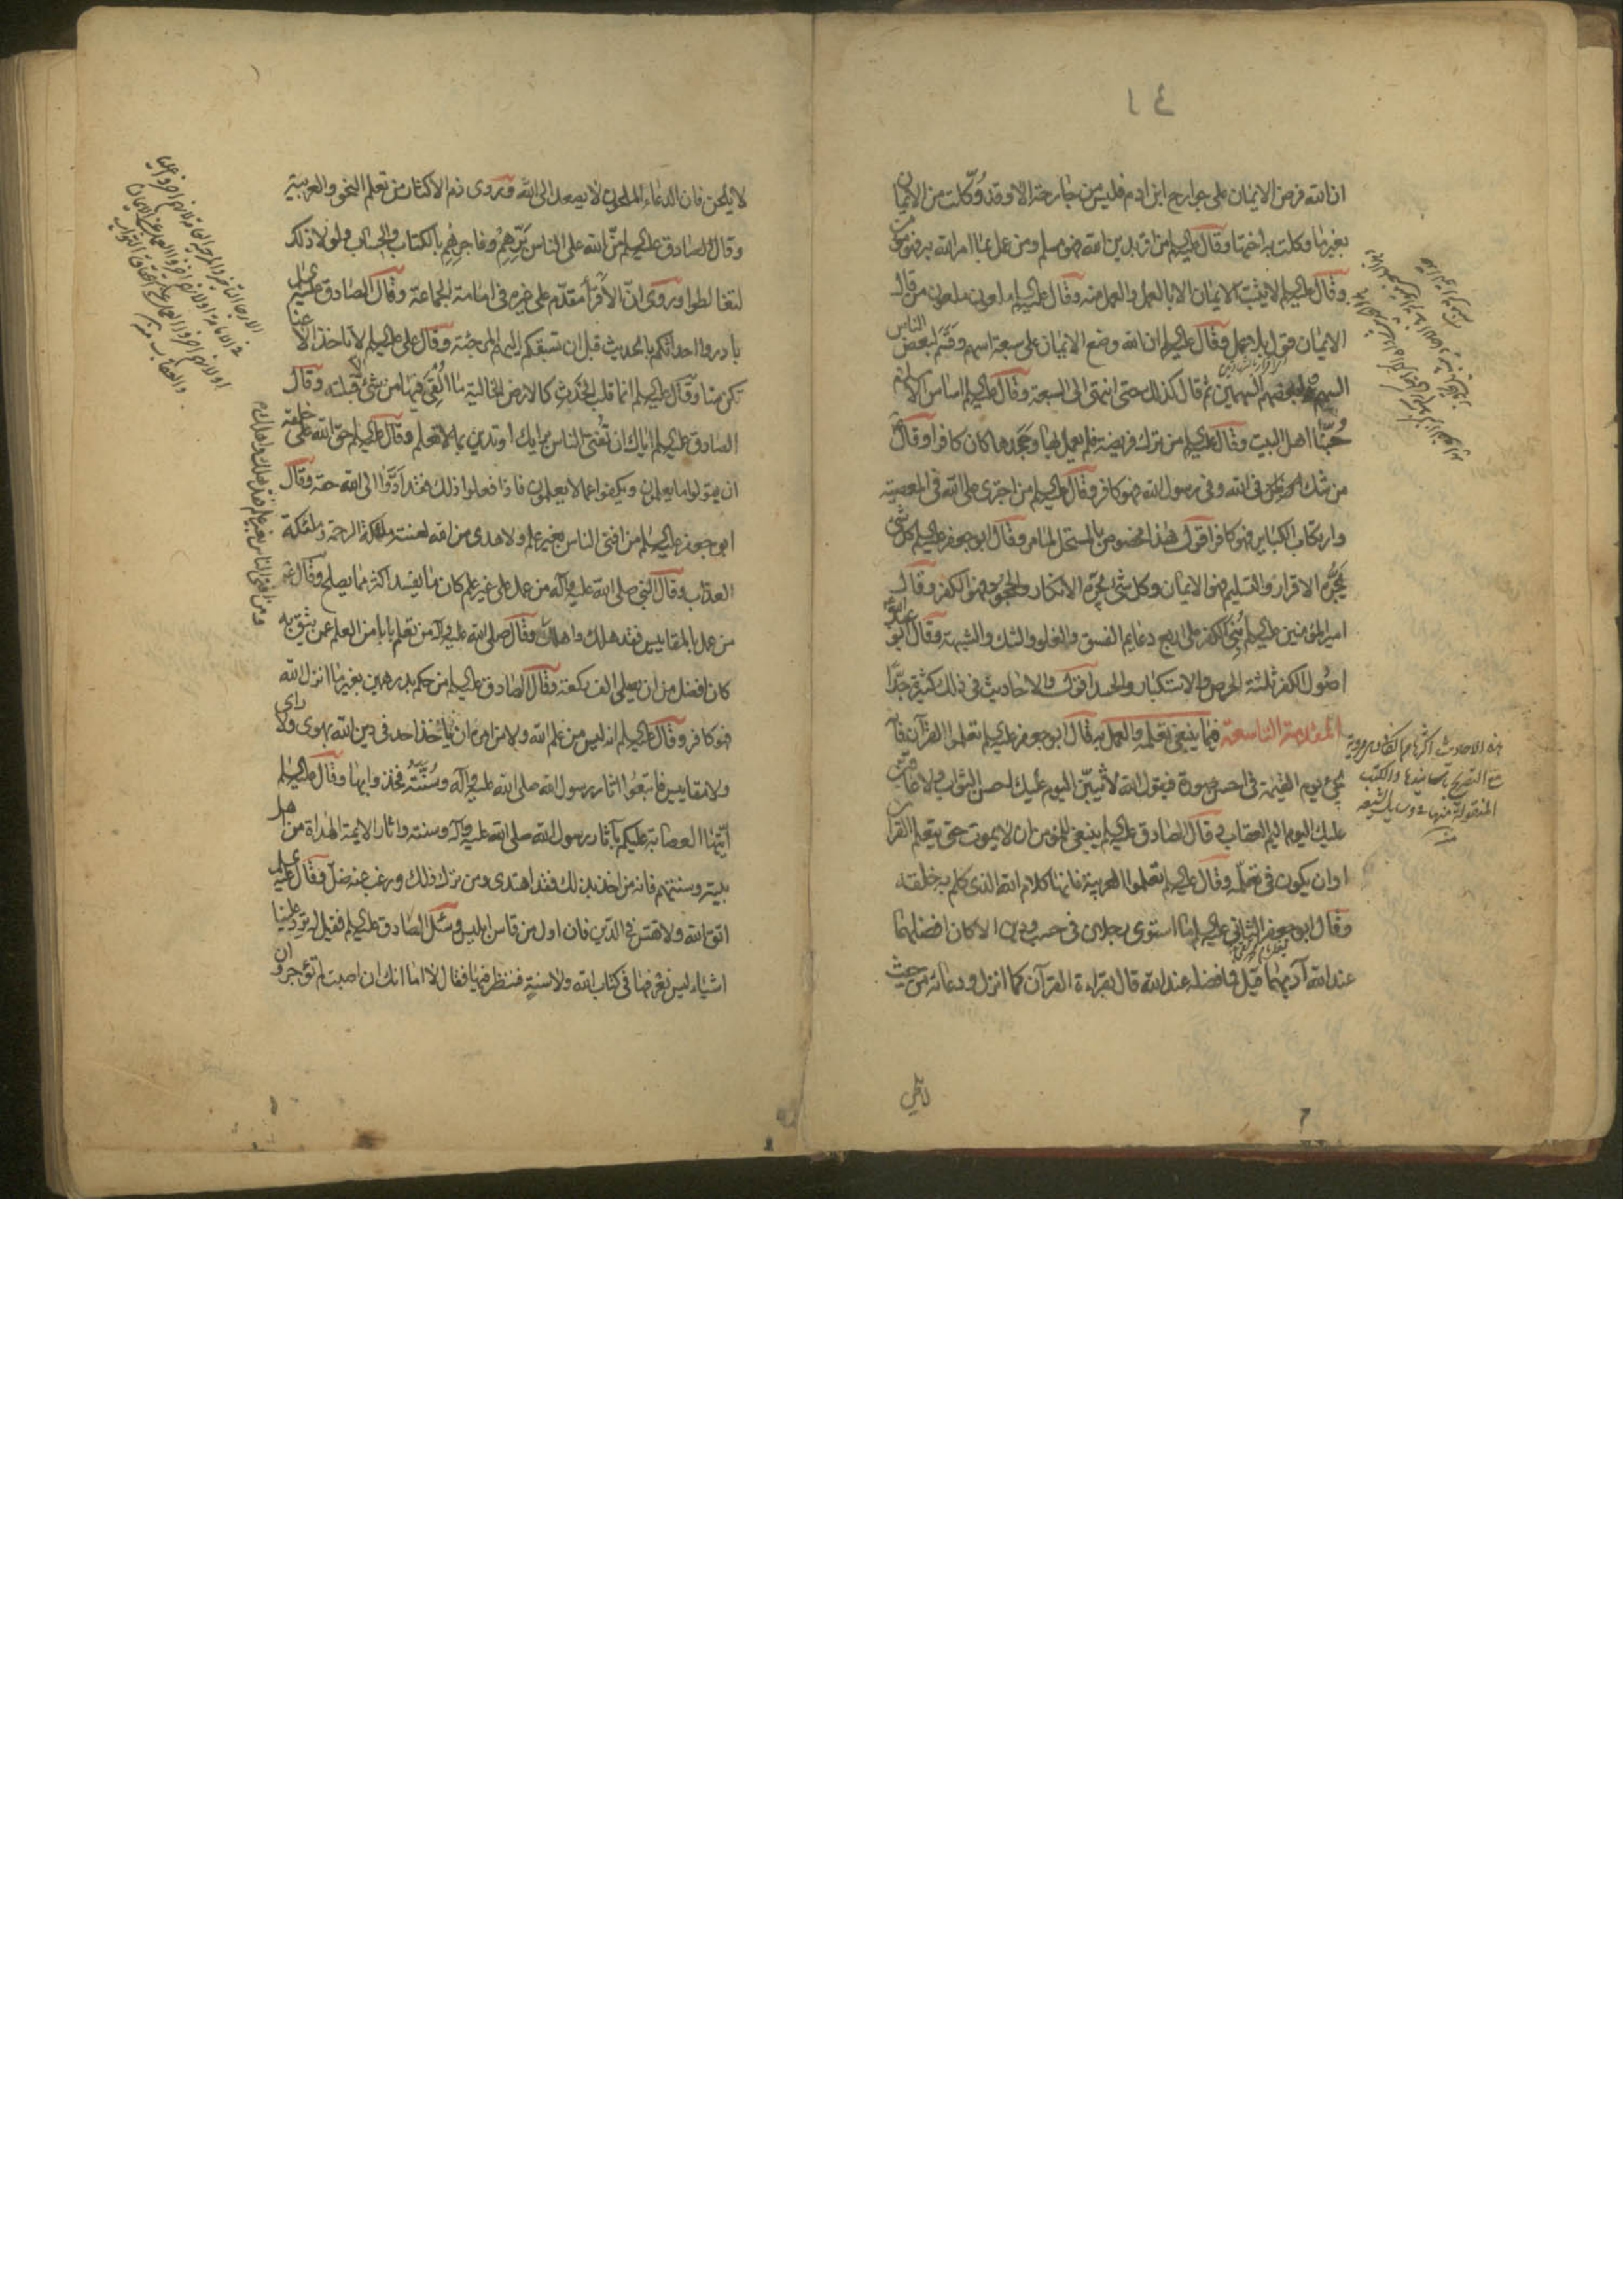 ان الله فرض الايمان على جوارح ابن ادم فليس من جارحة الا وقد وُكّلت من الايمان
بغير ما وكلت به اختها وقال عليه السلم من اقر بدين الله فهو مسلم ومن عمل بما امر الله به فهو مؤمن
وقال عليه السلم لا يثبت الايمان الا بالعمل والعمل منه وقال عليه السلم ملعون ملعون من قال
الايمان قول بلا عمل وقال عليه السلم ان الله وضع الايمان على سبعة اسهم وقسّم لبعض الناس
السهم ولبعضهم السهمين ثم قال كذلك حتى انتهى الى السبعة وقال عليه السلم اساس الاسلام
حُبّنا اهل البيت وقال عليه السلم من ترك فريضة فلم يعمل بها وجحدها كان كافرا وقال
من شك في الله وفي رسول الله فهو كافر وقال عليه السلم من اجترى على الله في المعصية
وارتكاب الكباير فهو كافر اقول هذا مخصوص بالمستحل لما مر وقال ابو جعفر عليه السلم كل شئ
يَجُرُّه الاقرار والتسليم فهو الايمان وكل شئ يجره الانكار والجحود فهو الكفر وقال
امير المؤمنين عليه السلم بُنِيَ الكفر على اربع دعايم الفسق والغلو والشك والشبهة وقال ابو عبد الله
اصُول الكفر ثلثة الحرص والاستكبار والحسد اقول والاحاديث في ذلك كثيرة جدّا
المقدمة التاسعة فيما ينبغي تعلمه والعمل به قال ابو جعفر عليه السلم تعلموا القرآن فانه
يجئ يوم القيمة في احسن صورة فيقول الله لأثيبنّ اليوم عليك احسن الثواب ولاعاقبن
عليك اليوم اليم العقاب وقال الصادق عليه السلم ينبغي للمؤمن ان لا يموت حتى يتعلم القران
او ان يكون في تعلّمه وقال عليه السلم تعلموا العربية فانها كلام الله الذي كلم به خلقه
وقال ابو جعفر الثاني عليه السلم ما استوى رجلان في حسب ودين الا كان افضلهما
عند الله آدبهما قيل فما فضله عند الله قال بقراءة القرآن كما انزل ودعائه من حيث
هذه الاحاديث اكثرها من الكافي مروية
مع التصريح باسانيدها والكتب
المنقولة منها في وسايل الشيعة
منه
لا يلحن فان الدعاء الملحون لا يصعد الى الله وروى ذم الاكثار من تعلم النحو والعربية
وقال الصادق عليه السلم منّ الله على الناس بَرِّهِم وفاجرهم بالكتاب والحساب ولولا ذلك
لتغالطوا وروى انّ الاقرأ مقدّم على غيره في امامة الجماعة وقال الصادق عليه السلم
بادروا احداثكم بالحديث قبل ان تسبقكم اليهم المرجئة وقال علي عليه السلم لا تاخذ الا عنا
تكن منا وقال عليه السلم انما قلب الحَدَث كالارض الخالية ما اُلقى فيها من شئ قبلته وقال
الصادق عليه السلم اياك ان تُفتى الناس برايك او تدين بما لا تعلم وقال عليه السلم حق الله على خلقه
ان يقولوا ما يعلمون ويكفوا عما لا يعلمون فاذا فعلوا ذلك فقد اَدَّوْا الى الله حقه وقال
ابو جعفر عليه السلم من افتى الناس بغير علم ولا هدى من الله لعنته ملئكة الرحمة وملئكة
العذاب وقال النبي صلى الله عليه وآله من عمل على غير علم كان ما يفسد اكثر مما يصلح وقال
من عمل بالمقاييس فقد هلك واهلك وقال صلى الله عليه وآله من تعلم بابا من العلم عمن يثق به
كان افضل من ان يصلى الف ركعة وقال الصادق عليه السلم من حكم بدرهمين بغير ما انزل الله
فهو كافر وقال عليه السلم انه ليس من علم الله ولا من امره ان ياخذ احد في دين الله بهوى ولا راى
ولا مقاييس فاتبعُوا اثار رسول الله صلى الله عليه وآله وسُنَّتَهُ فخذوا بها وقال عليه السلم
أيّتها العصابة عليكم بآثار رسول الله صلى الله عليه وآله وسنته واثار الايمة الهداة من اهل
بيته وسنتهم فانه من اخذ بذلك فقد اهتدى ومن ترك ذلك ورغب عنه ضلّ وقال عليه السلم
اتق الله ولا تقس في الدين فان اول من قاس ابليس وسئل الصادق عليه السلم فقيل له ترد علينا
اشياء ليس نعرفها في كتاب الله ولا سنة فننظر فيها فقال لا اما انك ان اصبت لم تؤجر وان
ومن افتى الناس بغير علم فقد هلك واهلك